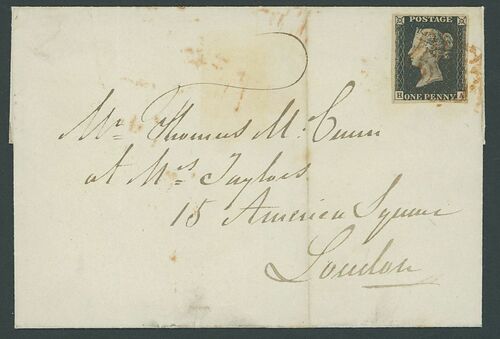 POSTAGE
H A
ONE PENNY
Mr. Thomas Mc.
at Mrs Taylors
15 America Square
London